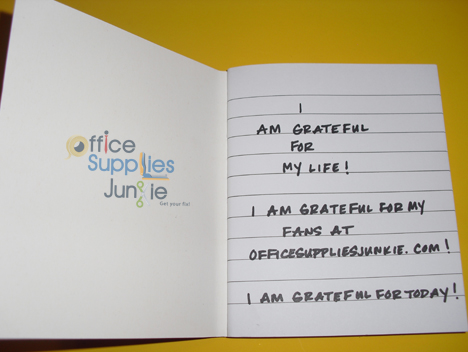 Office
Supplies
Junkie
Get your fix!
I
AM GRATEFUL
FOR
MY LIFE!
I AM GRATEFUL FOR MY
FANS AT
OFFICESUPPLIESJUNKIE.COM!
I AM GRATEFUL FOR TODAY!